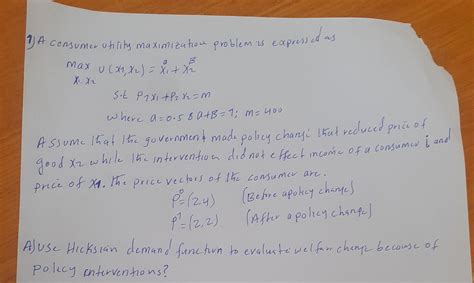 1) A consumer utility maximization problem is expressed as
max U(x1, x2) = x1^a + x2^B
x1 x2
s.t p1x1 + p2x2 = m
where a = 0.5 & a+B = 1; m = 400
Assume that the government made policy change that reduced price of
good x2 while the intervention did not effect income of a consumer i and
price of x1. the price vectors of the consumer are.
P^0 = (2,4) (Before apolicy change)
P^1 = (2,2) (After a policy change)
A) use Hicksian demand function to evaluate welfare change because of
policy interventions?